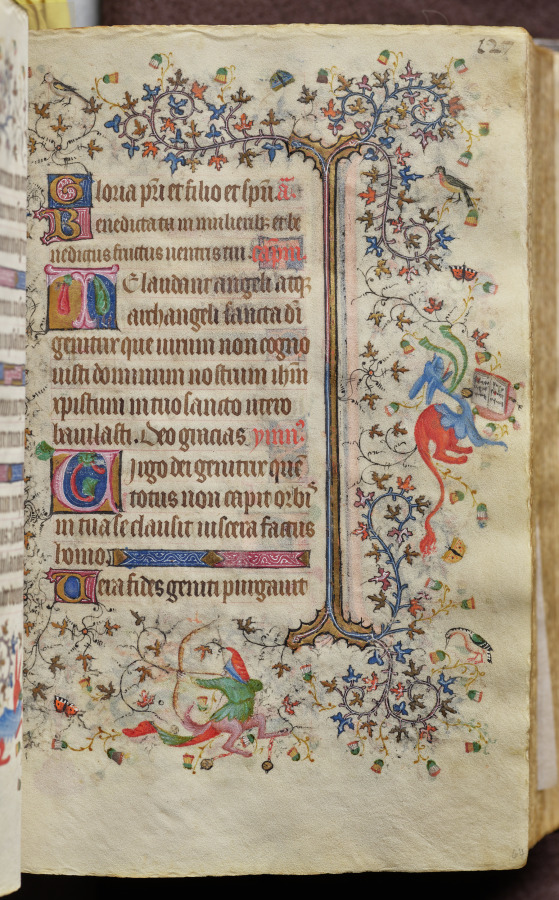 127
Gloria pri et filio et spui ā.
Benedicta tu in mulierib; et be
nedictus fructus uentris tui. capm.
Te laudant angeli atq;
archangeli sancta di
genitrix que uirum non cogno
uisti dominum nostrum ihm
xpistum in tuo sancto utero
baiulasti. Deo gracias ymn?
Uirgo dei genitrix que
totus non capit orbis
in tua se clausit uiscera factus
homo
Uera fides geniti purgauit